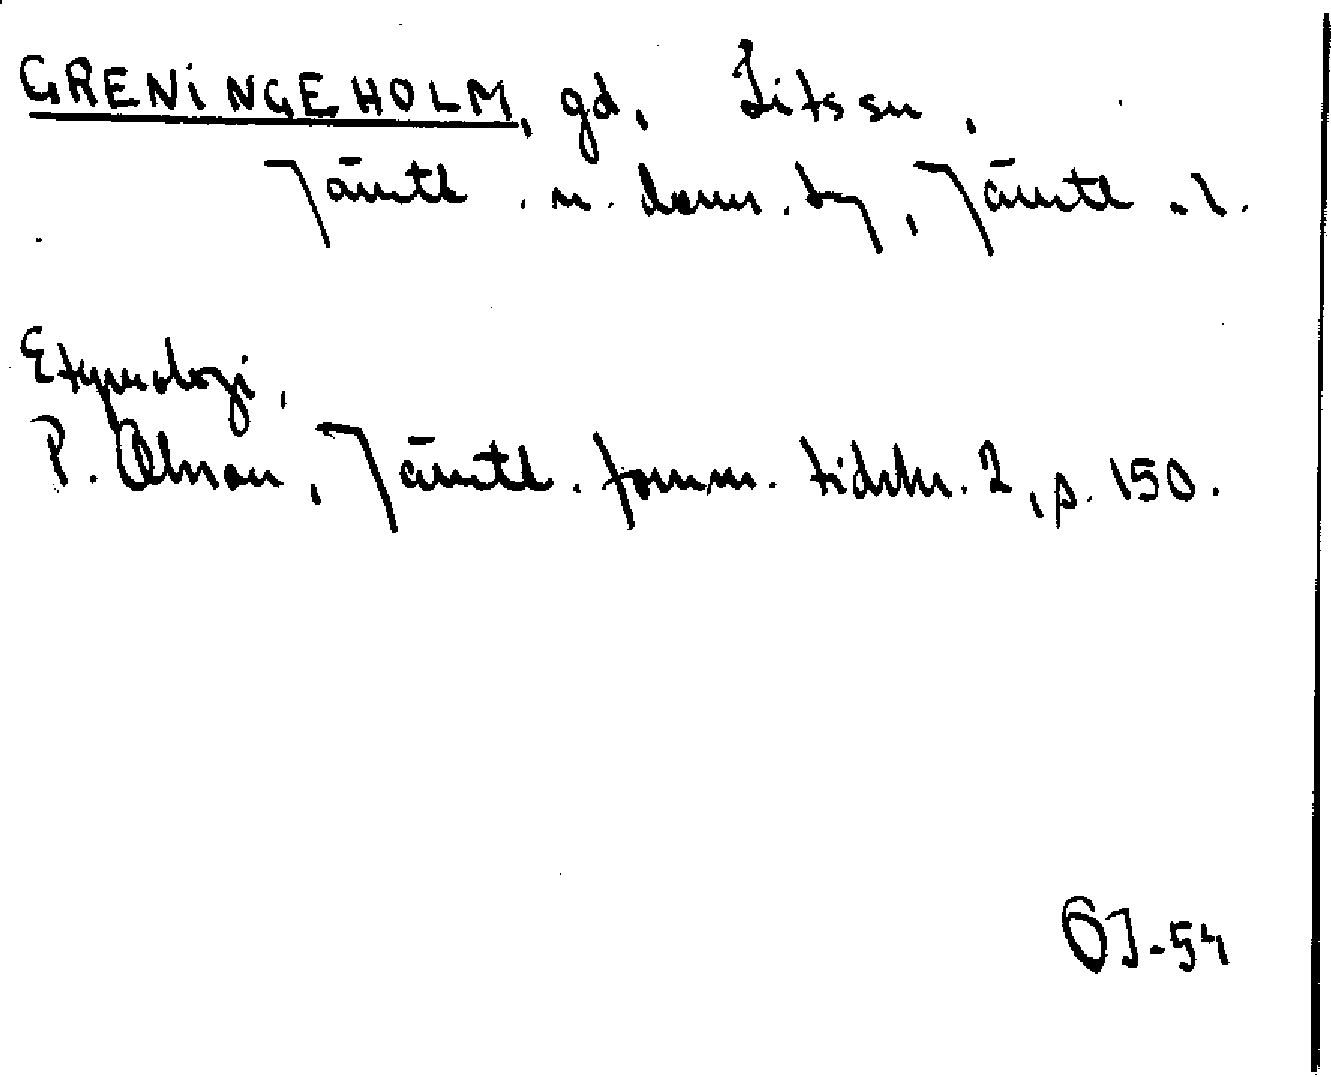 GRENINGEHOLM, gd, Lits sn,
Jämtl. n. doms. by, Jämtl. l.
Etymologi,
P. Olsson, Jämtl. fornm. tidskr. 2, s. 150.
OJ-54